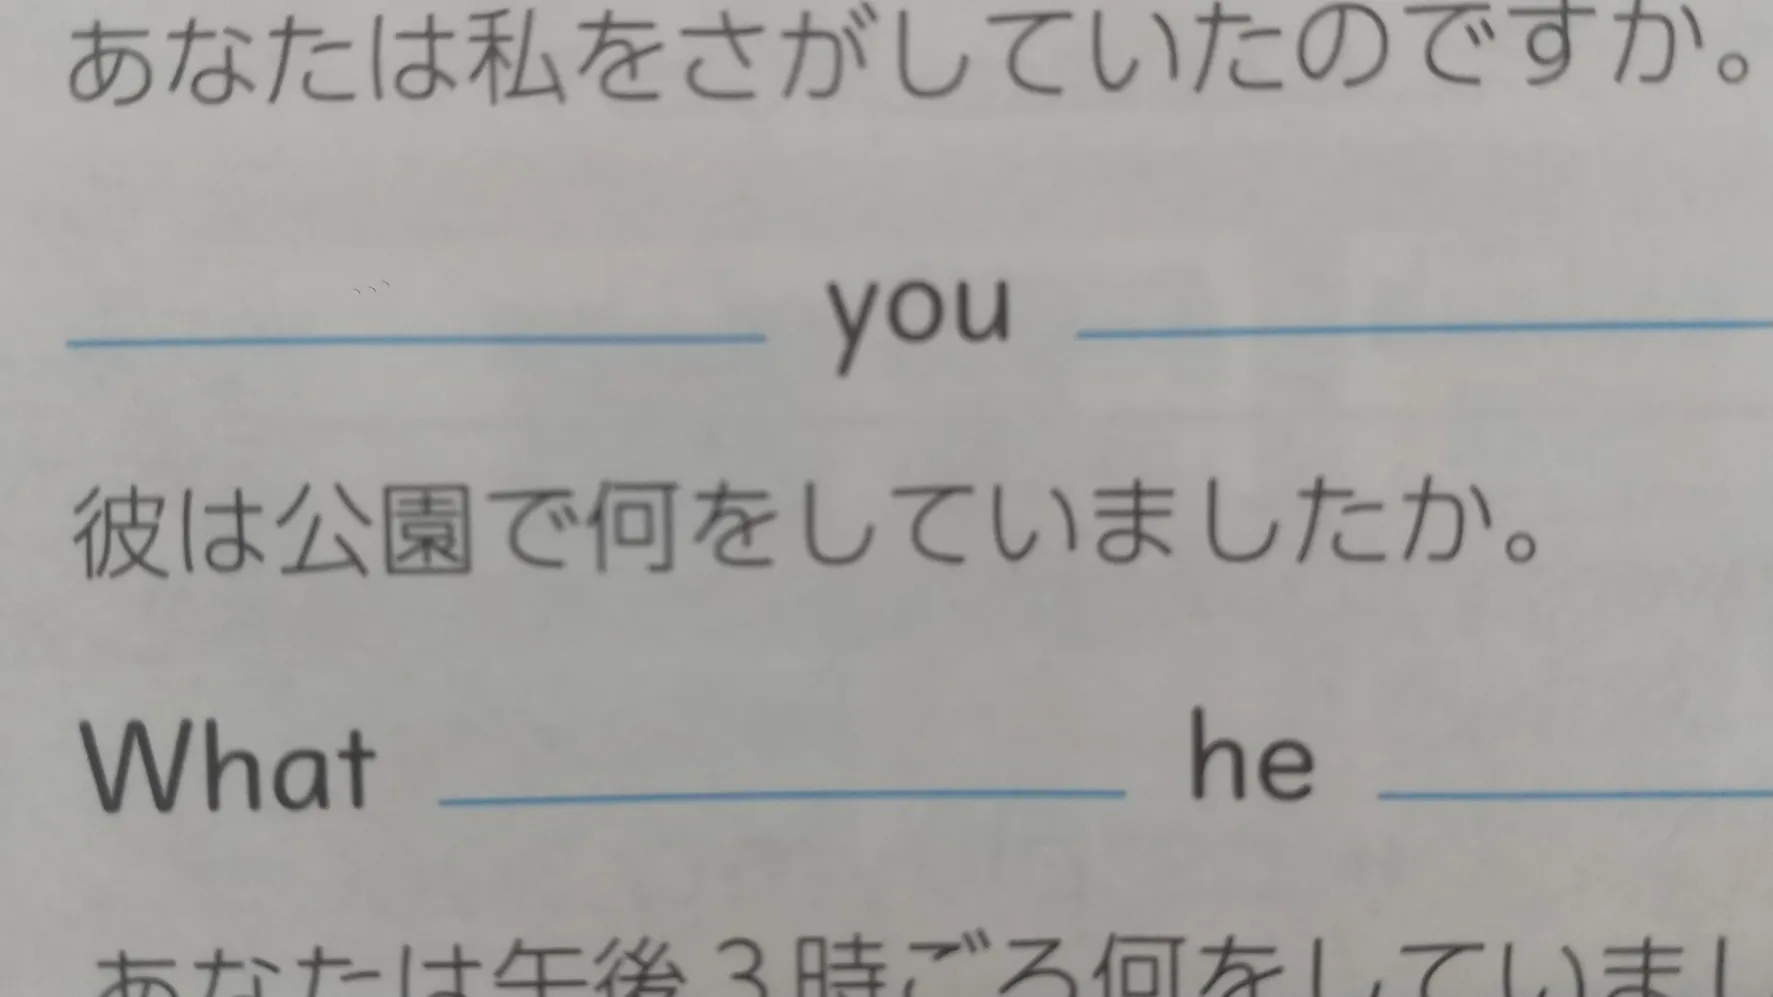 あなたは私をさがしていたのですか。
you
彼は公園で何をしていましたか。
What he
あなたは午後3時ごろ何をしていまし